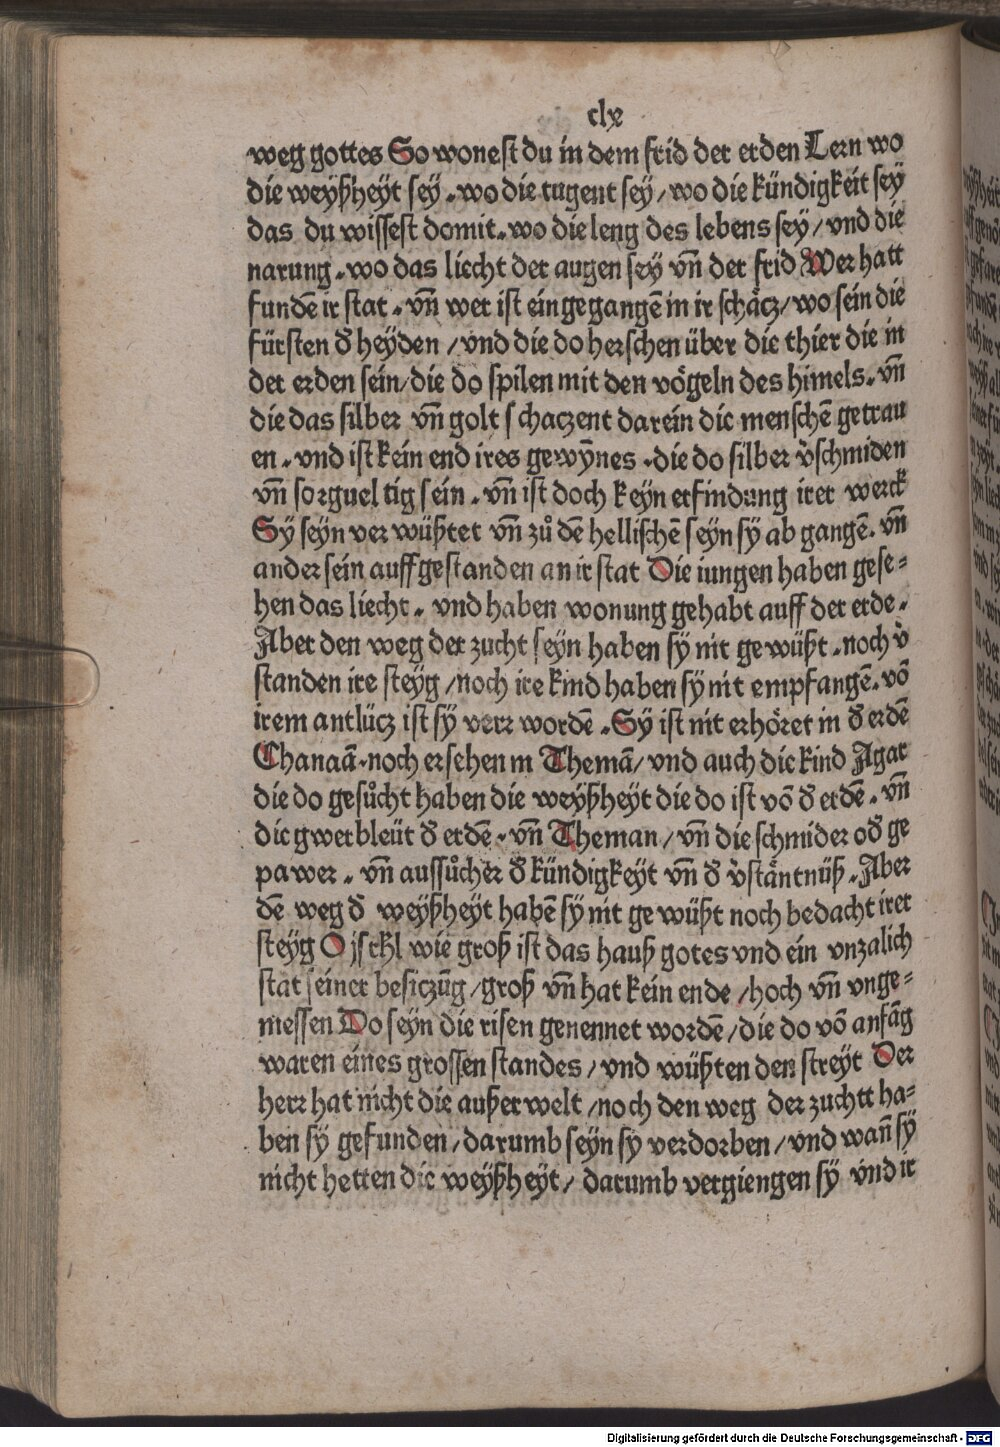 clx
weg gottes So wonest du in dem frid der erden Lern wo
die weyßheyt sey . wo die tugent sey / wo die kündigkeit sey
das du wissest domit . wo die leng des lebens sey / vnd die
narung . wo das liecht der augen sey vn̄ der frid Wer hatt
fundē ir stat . vn̄ wer ist eingegangē in ir schäcz / wo sein die
fürsten d̕ heyden / vnd die do herschen über die thier die in
der erden sein / die do spilen mit den vögeln des himels . vn̄
die das silber vn̄ golt schaczent darein die menschē getrau
en . vnd ist kein end ires gewȳnes . die do silber v̕schmiden
vn̄ sorgueltig sein . vn̄ ist doch keyn erfindung irer werck
Sy seyn verwüßtet vn̄ zů dē hellischē seyn sy ab gangē . vn̄
ander sein auffgestanden an ir stat Die iungen haben gese⸗
hen das liecht . vnd haben wonung gehabt auff der erde .
Aber den weg der zucht seyn haben sy nit gewüßt . noch v̕
standen ire steyg / noch ire kind haben sy nit empfangē . vō
irem antlücz ist sy verr wordē . Sy ist nit erhöret in d̕ erdē
Chanaā . noch ersehen in Themā / vnd auch die kind Agar
die do gesůcht haben die weyßheyt die do ist vō d̕ erdē . vn̄
die gwerbleüt d̕ erdē . vn̄ Theman / vn̄ die schmider od̕ ge
pawer . vn̄ aussůcher d̕ kündigkeyt vn̄ d̕ v̕stäntnüß . Aber
dē weg d̕ weyßheyt habē sy nit gewüßt noch bedacht irer
steyg O jsrhl wie groß ist das hauß gotes vnd ein vnzalich
stat seiner besiczūg / groß vn̄ hat kein ende / hoch vn̄ vnge⸗
messen Do seyn die risen genennet wordē / die do vō anfāg
waren eines grossen standes / vnd wüßten den streyt Der
herr hat nicht die außerwelt / noch den weg der zuchtt ha⸗
ben sy gefunden / darumb seyn sy verdorben / vnd wan̄ sy
nicht hetten die weyßheyt / darumb vergiengen sy vnd ir
Digitalisierung gefördert durch die Deutsche Forschungsgemeinschaft - DFG